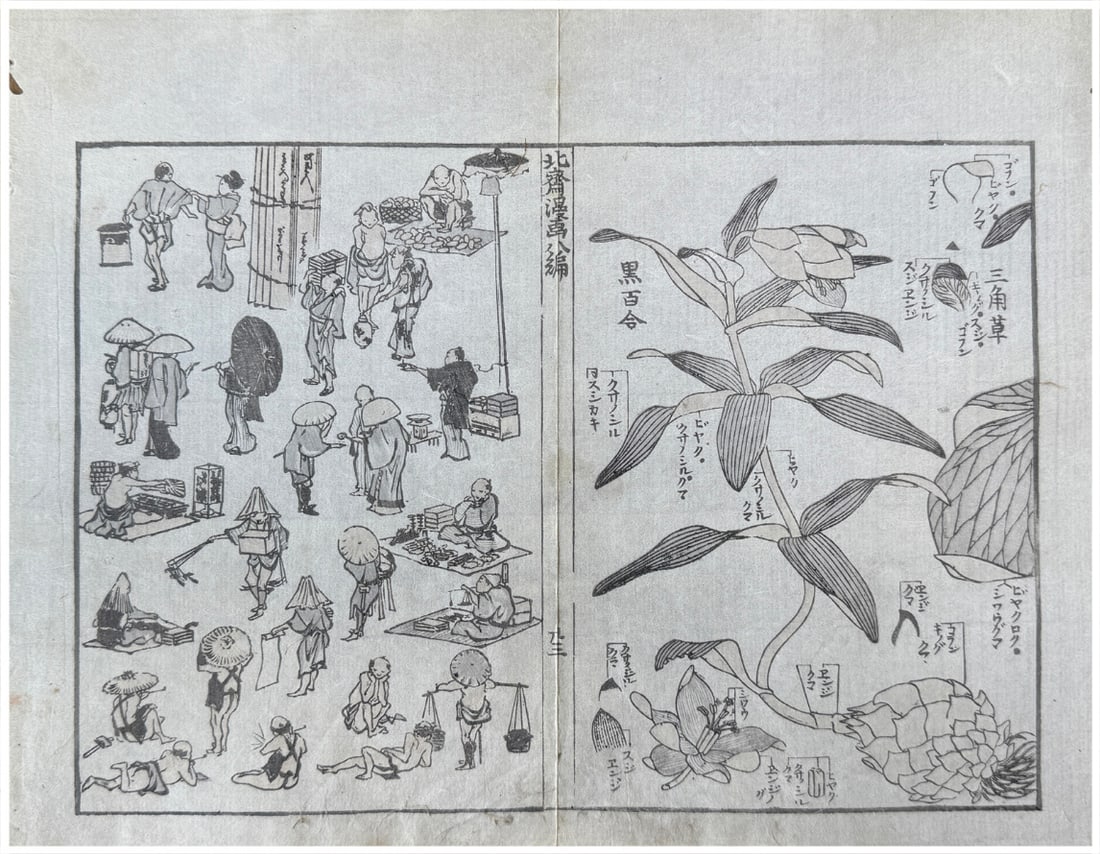 ゴフン
ビヤク
クマ
ゴフン
三角草
クサノシル
スジヱンジ
スジ
ゴフン
黒百合
クサノシル
ビヤク
クサノシルクマ
ビヤク
クサノシル
クマ
ビヤクロク
シワウグマ
ヱンジ
クマ
クマ
ゴフン
キノグ
クマ
ヱンジ
クマ
クサノシル
クマ
シワウ
スジ
ヱンジ
ビヤク
クサノシル
クマ
ヱンジノ
グ
北斎漫画八編
廿三